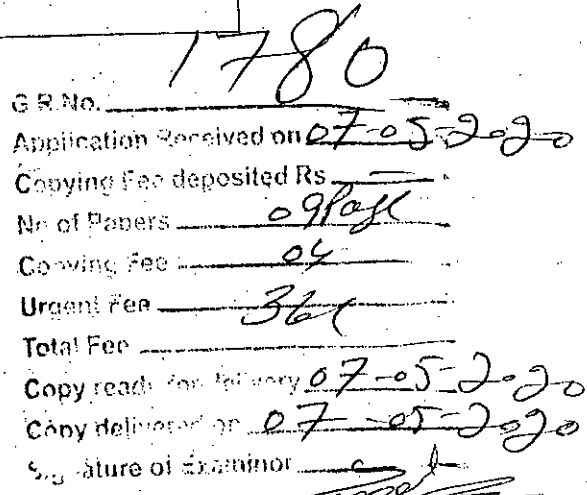 1780
G.R.No.
Application Received on 07-05-2020
Copying Fee deposited Rs
No of Papers 09 Page
Copying Fee 04
Urgent Fee 36/
Total Fee
Copy ready for delivery 07-05-2020
Copy delivered on 07-05-2020
Signature of Examinor